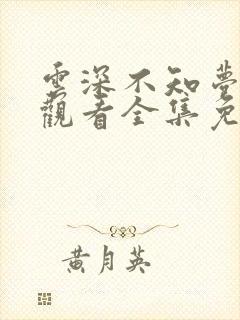 雲深不知夢
觀看全集免
黃月英